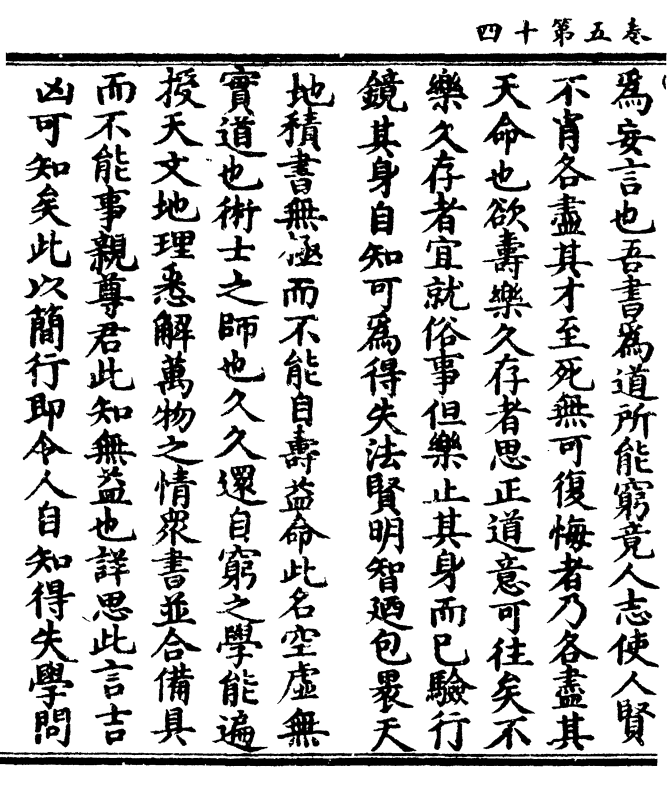 卷五第十四
爲妄言也吾書爲道所能窮竟人志使人賢
不肖各盡其才至死無可復悔者乃各盡其
天命也欲壽樂久存者思正道意可往矣不
樂久存者宜就俗事但樂止其身而已驗行
鏡其身自知可爲得失法賢明智迺包裹天
地積書無極而不能自壽益命此名空虛無
實道也術士之師也久久還自窮之學能遍
授天文地理悉解萬物之情衆書並合備具
而不能事親尊君此知無益也詳思此言吉
凶可知矣此以簡行即令人自知得失學問